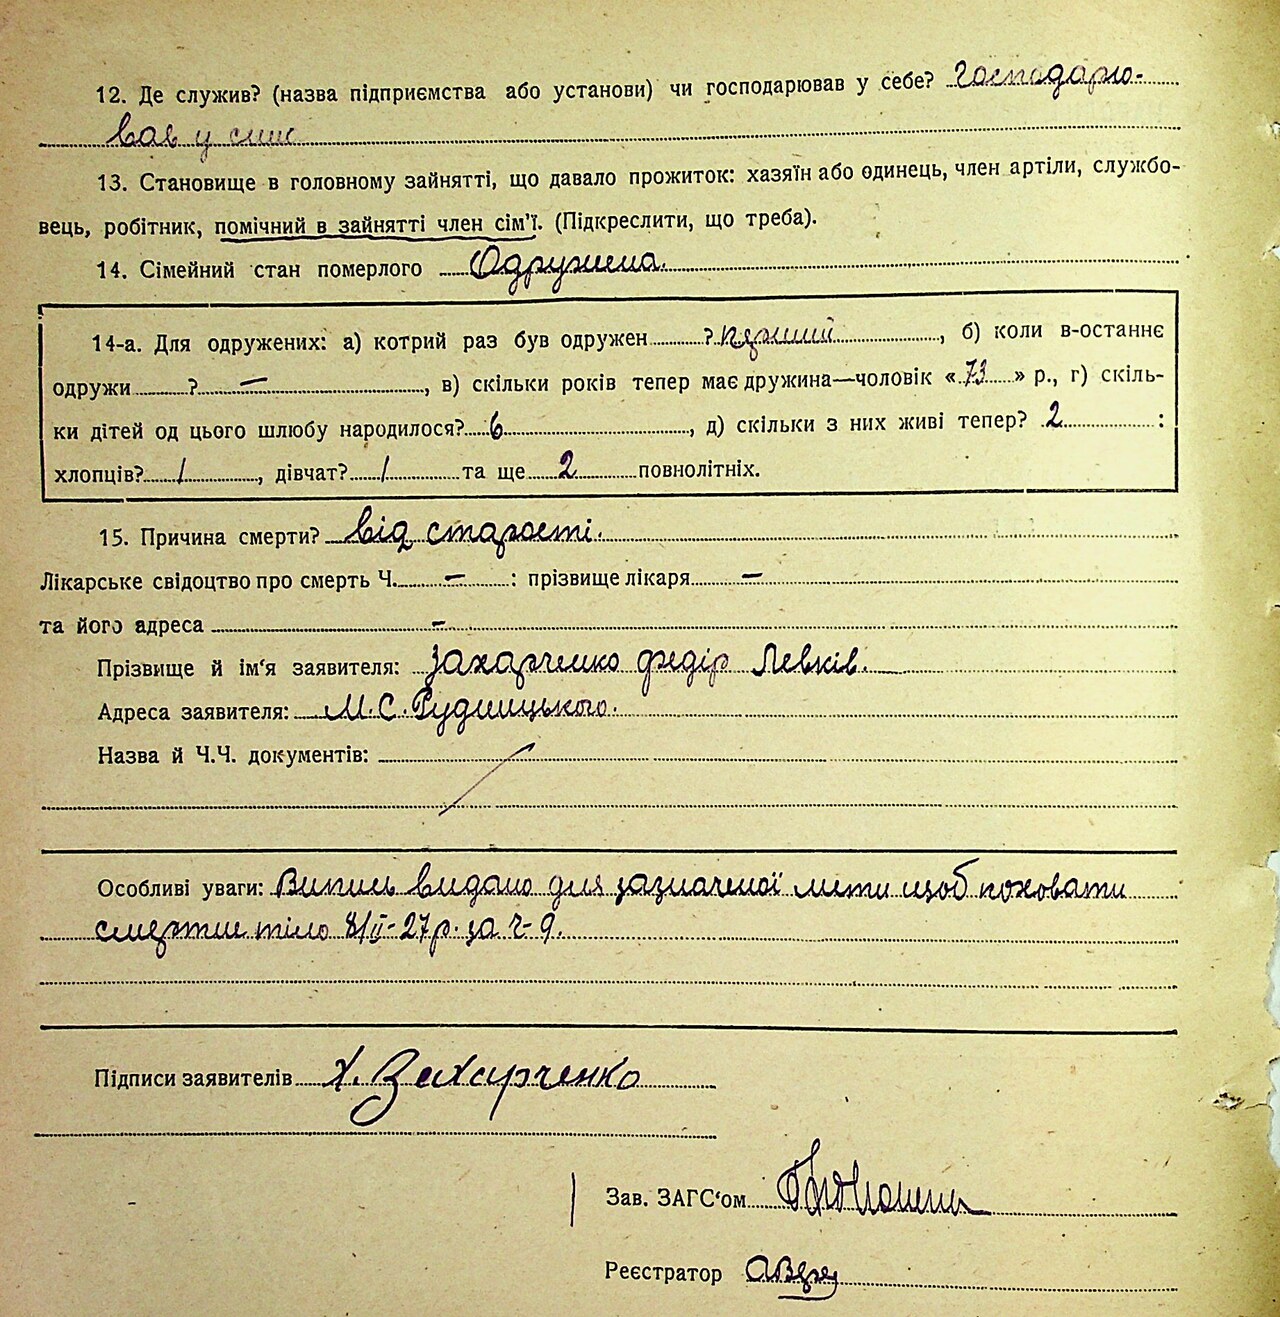 12. Де служив? (назва підприємства або установи) чи господарював у себе? Господарю-
вав у
13. Становище в головному зайнятті, що давало прожиток: хазяїн або одинець, член артіли, службо-
вець, робітник, помічний в зайнятті член сім'ї. (Підкреслити, що треба).
14. Сімейний стан померлого Одружена.
14-а. Для одружених: а) котрий раз був одружен ? перший, б) коли в-останнє
одружи ? —, в) скільки років тепер має дружина—чоловік «73» р., г) скіль-
ки дітей од цього шлюбу народилося? 6, д) скільки з них живі тепер? 2 :
хлопців? 1, дівчат? 1 та ще 2 повнолітніх.
15. Причина смерти? від старости.
Лікарське свідоцтво про смерть Ч. — : прізвище лікаря —
та його адреса –
Прізвище й ім'я заявителя: Захарченко Федір Левків.
Адреса заявителя: М.С. Рудницького.
Назва й Ч.Ч. документів:
Особливі уваги: Випись видано для зазначеної мети щоб поховати
смертне тіло 8/II-27р. за ч-9.
Підписи заявителів Х. Захарченко
Зав. ЗАГС'ом
Реєстратор